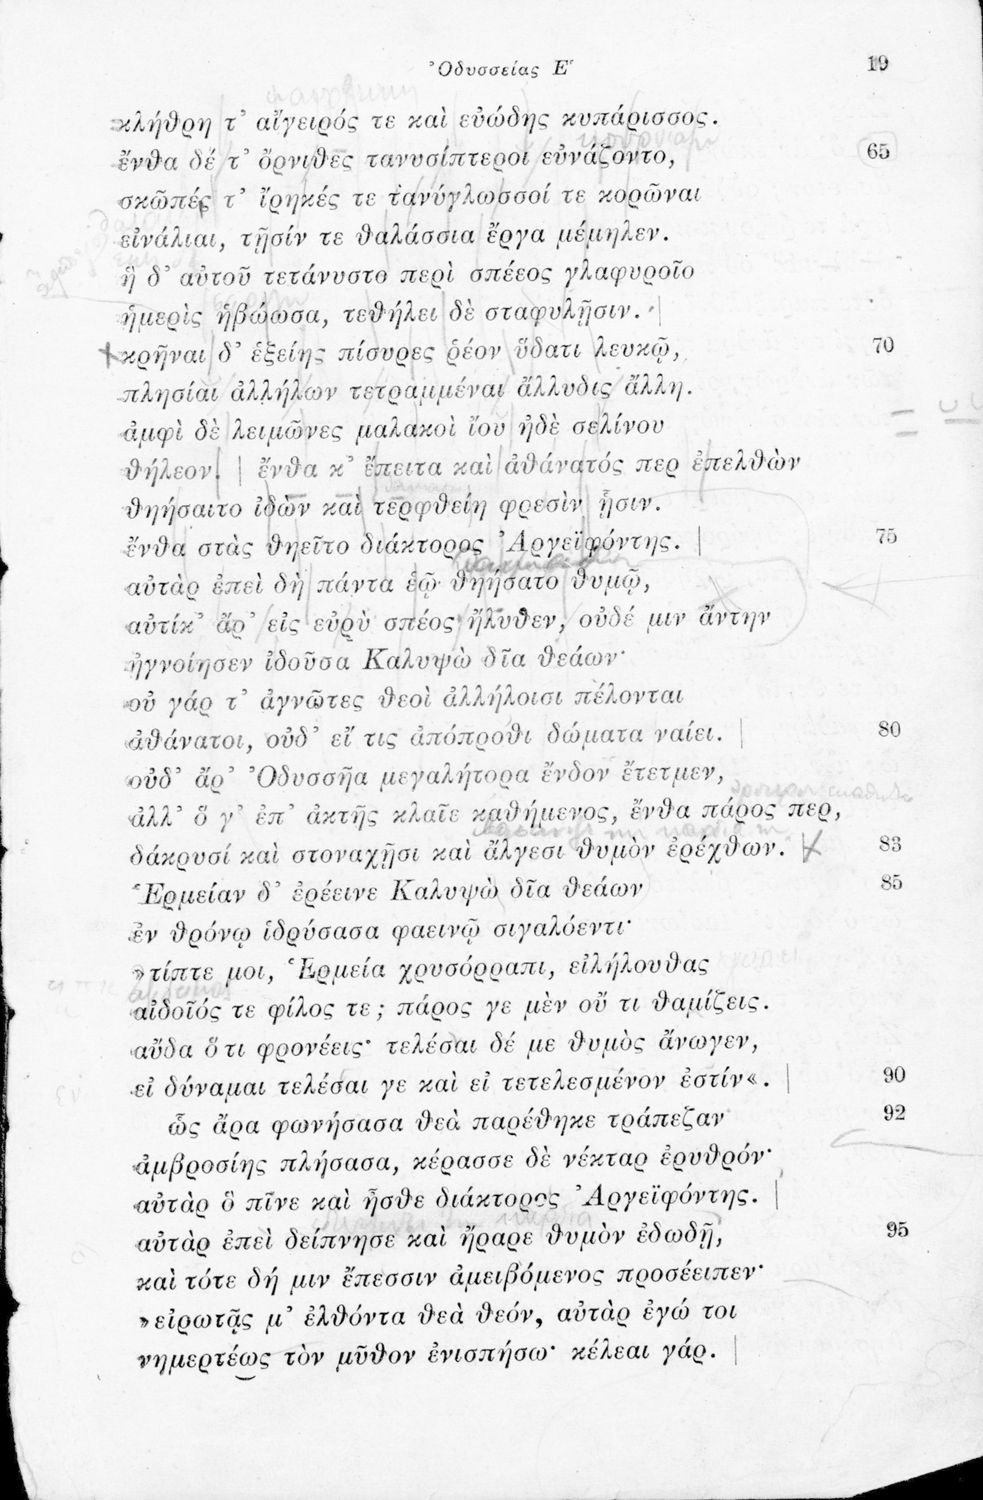 Ὀδυσσείας Ε΄ 19
κλήθρη τ’ αἴγειρός τε καὶ εὐώδης κυπάρισσος.
ἔνθα δέ τ’ ὄρνιθες τανυσίπτεροι εὐνάζοντο, 65
σκῶπές τ’ ἴρηκές τε τανύγλωσσοί τε κορῶναι
εἰνάλιαι, τῇσίν τε θαλάσσια ἔργα μέμηλεν.
ἣ δ’ αὐτοῦ τετάνυστο περὶ σπέεος γλαφυροῖο
ἡμερὶς ἡβώωσα, τεθήλει δὲ σταφυλῇσιν.
κρῆναι δ’ ἑξείης πίσυρες ῥέον ὕδατι λευκῷ, 70
πλησίαι ἀλλήλων τετραμμέναι ἄλλυδις ἄλλη.
ἀμφὶ δὲ λειμῶνες μαλακοὶ ἴου ἠδὲ σελίνου
θήλεον. ἔνθα κ’ ἔπειτα καὶ ἀθάνατός περ ἐπελθὼν
θηήσαιτο ἰδὼν καὶ τερφθείη φρεσὶν ᾗσιν.
ἔνθα στὰς θηεῖτο διάκτορος Ἀργεϊφόντης. 75
αὐτὰρ ἐπεὶ δὴ πάντα ἑῷ θηήσατο θυμῷ,
αὐτίκ’ ἄρ’ εἰς εὐρὺ σπέος ἤλυθεν, οὐδέ μιν ἄντην
ἠγνοίησεν ἰδοῦσα Καλυψὼ δῖα θεάων·
οὐ γάρ τ’ ἀγνῶτες θεοὶ ἀλλήλοισι πέλονται
ἀθάνατοι, οὐδ’ εἴ τις ἀπόπροθι δώματα ναίει. 80
οὐδ’ ἄρ’ Ὀδυσσῆα μεγαλήτορα ἔνδον ἔτετμεν,
ἀλλ’ ὅ γ’ ἐπ’ ἀκτῆς κλαῖε καθήμενος, ἔνθα πάρος περ,
δάκρυσί καὶ στοναχῇσι καὶ ἄλγεσι θυμὸν ἐρέχθων. 83
Ἑρμείαν δ’ ἐρέεινε Καλυψὼ δῖα θεάων 85
ἐν θρόνῳ ἱδρύσασα φαεινῷ σιγαλόεντι·
»τίπτε μοι, Ἑρμεία χρυσόρραπι, εἰλήλουθας
αἰδοῖός τε φίλος τε; πάρος γε μὲν οὔ τι θαμίζεις.
αὔδα ὅτι φρονέεις· τελέσαι δέ με θυμὸς ἄνωγεν,
εἰ δύναμαι τελέσαι γε καὶ εἰ τετελεσμένον ἐστίν«. 90
ὣς ἄρα φωνήσασα θεὰ παρέθηκε τράπεζαν 92
ἀμβροσίης πλήσασα, κέρασσε δὲ νέκταρ ἐρυθρόν·
αὐτὰρ ὃ πῖνε καὶ ἦσθε διάκτορος Ἀργεϊφόντης.
αὐτὰρ ἐπεὶ δείπνησε καὶ ἤραρε θυμὸν ἐδωδῇ, 95
καὶ τότε δή μιν ἔπεσσιν ἀμειβόμενος προσέειπεν·
»εἰρωτᾷς μ’ ἐλθόντα θεὰ θεόν, αὐτὰρ ἐγώ τοι
νημερτέως τὸν μῦθον ἐνισπήσω· κέλεαι γάρ.